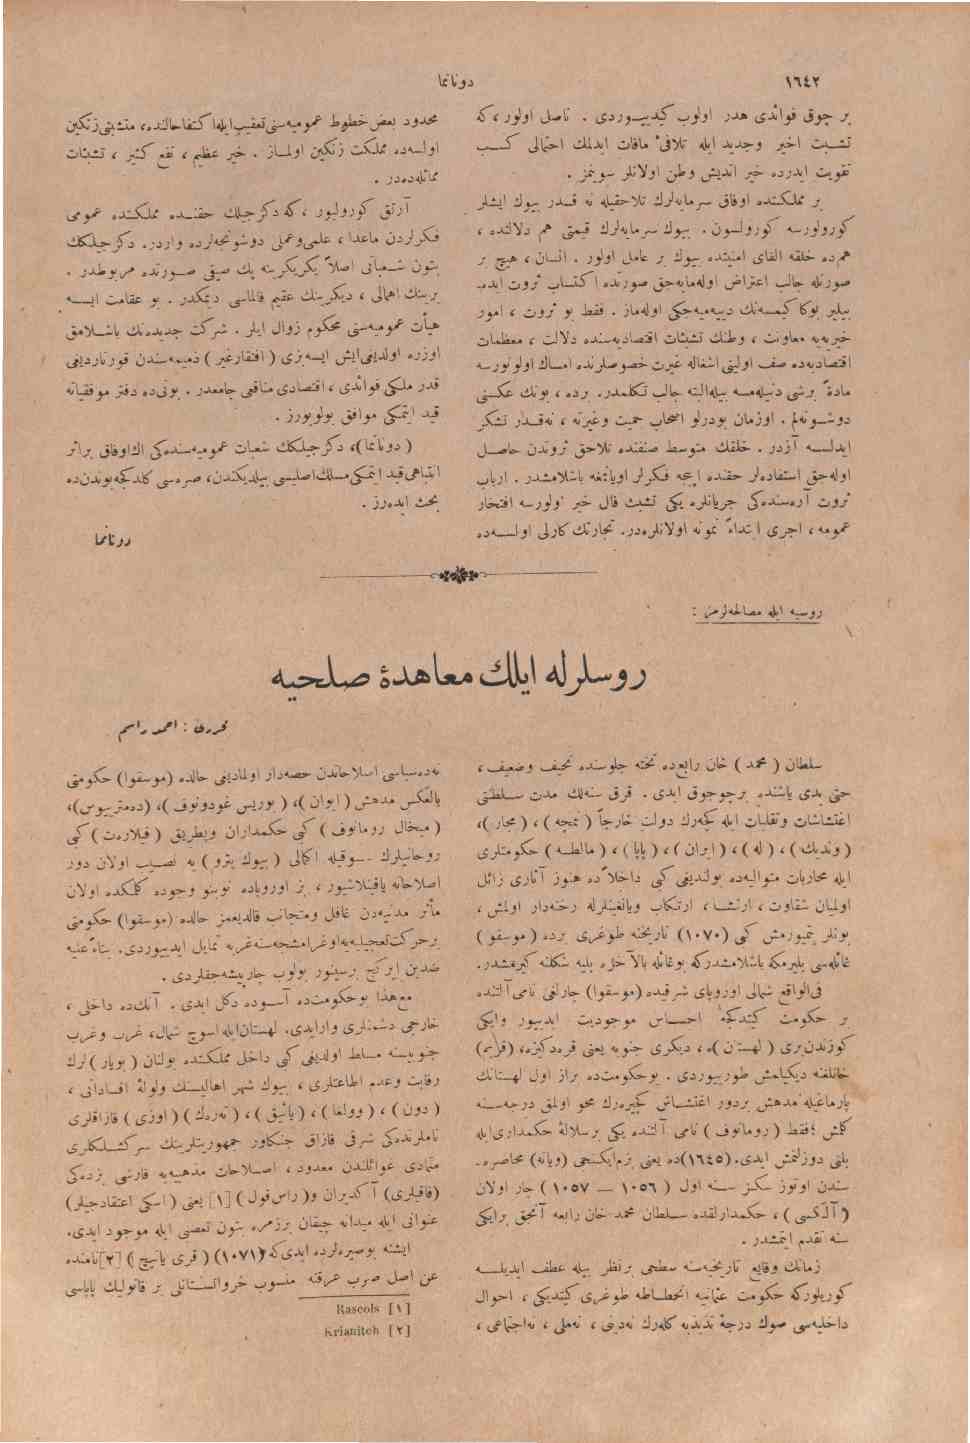 ١٦٤٢
دونانما
بر چوق فوائدى هدر اولوب كيدييــوردى . ناصل اولور ، كه
تشــبث اخير وجديد ايله تلافىٔ مافات ايدلمك احتمالى كســب
تقويت ايدرده خير انديش وطن اولانلر سوينمز .
بر مملكــتده اوفاق سرمايه‌لرك تلاحقيله نه قــدر بيوك ايشلر
كورولورسه كورولسون . بيوك سرمايه‌لرك قيمتى هم دلالتده ،
هم‌ده خلقه القاى امنيتده بيوك بر عامل اولور . انسان ، هيچ بر
صورتله جالب اعتراض اوله‌مايه‌جق صورتده اكتساب ثروت ايده‌
بيلير بوكا كيمسه‌نك دييه‌جكى اوله‌ماز . فقط بو ثروت ، امور
خيريه‌يه معاونت ، وطنك تشبثات اقتصاديه‌سنده دلالت ، معظمات
اقتصاديه‌ده صف اوليتى اشغاله غيرت خصوصلرنده امساك اولونورسه
مادةً برشى دنيله‌مسه بيله البته جالب تكلمدر. برده ، بونك عكسنى
دوشــونه‌لم . اوزمان بودرلو اصحاب حميت وغيرته ، نه‌قــدر تشكر
ايدلســه آزدر . خلقك متوسط صنفنده تلاحق ثروتدن حاصــل
اوله‌جق استفاده‌لر حقنده ايجه فكرلر اويانمغه باشلامشدر . ارباب
ثروت آره‌سنده‌كى جريانلره يكى تشبث فال خير اولورسه افتخار
عمومه ، اجرى ابتداءً نمونه اولانلره‌در. تجارتك كارلى اولســه‌ده
محدود بعض خطوط عموميه‌سنى تعقيب ايله اكتفا حالنده ، متشبثى زنكين
اولسه‌ده مملكت زنكين اولمــاز . خير عظيم ، نفع كثير ، تشبثات
مماثله‌ده‌در .
آرتق كورولييور ، كه دكزجيلك حقنــده مملكــتده عمومى
فكرلردن ماعدا ، علمى وعملى دوشونجه‌لرده واردر. دكزجيلكك
بتون شــعباتى اصلاً يكديكرينه پك صيقى صــورتده مربوطدر .
برينك اهمالى ، ديكرينك عقيم قالماسى ديمكدر. بو عقامت ايســه
هيأت عموميه‌سنى محكوم زوال ايلر . شركت جديده‌نك باشــلامق
اوزره اولديغى ايش ايسه بزى ( افتقار غير ) ذميمه‌سندن قورتارديغى
قدر ملكى فوائدى ، اقتصادى منافعى جامعدر . بونى‌ده دفتر موفقياته
قيد ايتمكى موافق بولويورز .
( دونانما )، دكزجيلكك شعبات عموميه‌سنده‌كى اك اوفاق براثر
انتباهى قيد ايتمكى مسلك اصليسى بيلديكندن، صره‌سى كلدكجه بوندن‌ده
بحث ايده‌رز .
دونانما
روسيه ايله مصالحه‌لرمز :
روسلرله ايلك معاهدهٔ صلحيه
محررى : احمد راسم
سلطان ( محمد ) خان رابع‌ده تخته جلوسنده نحيف وضعيف ،
حتى يدى ياشنده برچوجوق ايدى . قرق سنه‌لك مدت ســلطنتى
اغتشاشات وتقلبات ايله كچه‌رك دولت خارجاً ( نمچه ) ، ( مجار )،
( ونديك) ، ( له ) ، ( ايران ) ، ( پاپا ) ، ( مالطه ) حكومتلرى
ايله محاربات متواليه‌ده بولنديغى كبى داخلاً ده هنوز آثارى زائل
اولميان شقاوت ، ارتشــا ، ارتكاب ويانغينلرله رخنه‌دار اولمش ،
بونلر يتميورمش كبى (١٠٧٠) تاريخنه طوغرى برده ( موسقو )
غائله‌سى بليرمكه باشلامشدركه بوغائله بالآخره بليه شكلنه كيرمشدر.
فى‌الواقع شمالى اوروپاى شرقيده (موسقوا) چارلغى نامى آلتنده
بر حكومت كيتدكجه احســاس موجوديت ايدييور وايكى
كوزندن برى ( لهستان )ه ، ديكرى جنوبه يعنى قره‌دكزه، (قريم)
خانلغنه ديكيلمش طورييوردى . بوحكومت‌ده براز اول لهستانك
پارماغيله مدهش بردور اغتشــاش كچيره‌رك محو اولمق درجه‌ســنه
كلمش ؛ فقط ( رومانوف ) نامى آلتنده يكى برسلالهٔ حكمدارى ايله
بلنى دوزلتمش ايدى. (١٦٤٥)ده يعنى بزم ايكنجى (ويانه) محاصره-
سندن اوتوز سكــز ســنه اول ( ١٠٥٦ — ١٠٥٧ ) چار اولان
( آلكسى ) ، حكمدارلقده ســلطان محمد خان رابعه آنجق برايكى
سنه تقدم ايتمشدر .
زمانك وقايع تاريخيه‌سنه سطحى برنظر بيله عطف ايديلــه
كوريلوركه حكومت عثمانيه انحطاطه طوغرى كيتديكى ، احوال
داخليه‌سى صوك درجهٔ تذبذبه كله‌رك نه‌دينى ، نه‌ملى ، نه‌اجتماعى ،
نه‌ده سياسى اسلاحاتدن حصه‌دار اولماديغى حالده (موسقوا) حكومتى
بالعكس مدهش ( ايوان )، ( بوريس غودونوف )، (ده‌متريوس)،
( ميخال رومانوف ) كبى حكمداران وبطريق ( فيلارەت ) كبى
روحانيلرك ــوقيله اكمالى ( بيوك پترو ) يه نصيــب اولان دور
اصلاحاته ياقينلاشيور ، بز اوروپاده نوبنو وجوده كلمكده اولان
مآثر مدنيه‌دن غافل ومتجانب قالديغمز حالده (موسقوا) حكومتى
برحركت تعجيليه‌يه اوغرامشجه‌سنه غربه تمايل ايدييوردى. بناءً عليه
ضدين ايركچ برسينور بولوب چارپيشه‌جقلردى .
مع‌هذا بوحكومت‌ده آســوده دكل ايدى . آنك‌ده داخلى ،
خارجى دشمنلرى وارايدى. لهستان ايله اسوج شمال، غرب وغرب
جنوبيسنه مسلط اولديغى كبى داخل مملكــتده بولنان ( بويار ) لرك
رقابت وعدم اطاعتلرى ، بيوك شهر اهاليســنك ولولهٔ افســاداتى ،
( دون ) ، ( وولغا ) ، ( يائيق ) ، ( ته‌رەك ) ( اوزى ) قازاقلرى
ناملرنده‌كى شرقى قازاق جنكاور جمهوريتلرينك سركشــلكلرى
متمادى غوائلندن معدود ، اصــلاحات مذهبيه‌يه قارشى بزده‌كى
(قاقبلرى) آكديران و( راس‌قول ) [١] يعنى ( اسكى اعتقادجيلر)
عنوانى ايله ميدانه چيقان برزمره بتون تعصبى ايله موجود ايدى.
ايشته بوصيره‌لرده ايدى‌كه (١٠٧١) ( قرى يانيچ ) [٢] نامنده
عن اصل صرب عرقنه منسوب خروواتســتانلى بر قاتوليك پاپاسى
[١] Rascols
[٢] Krianitch